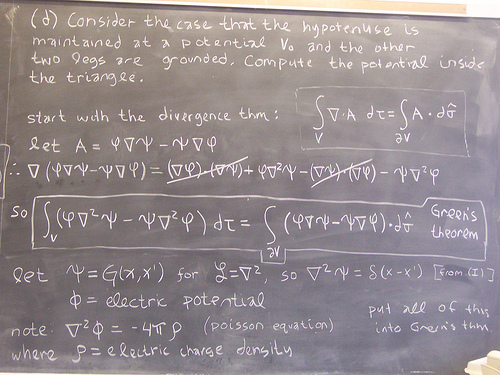 (d) Consider the case that the hypotenuse is
maintained at a potential V₀ and the other
two legs are grounded. Compute the potential inside
the triangle.
start with the divergence thm: ∫_V ∇·A dτ = ∫_∂V A·dσ̂
let A = φ∇ψ − ψ∇φ
∴ ∇(φ∇ψ−ψ∇φ) = (∇φ)·(∇ψ) + φ∇²ψ − (∇ψ)·(∇φ) − ψ∇²φ
so ∫_V (φ∇²ψ − ψ∇²φ) dτ = ∫_∂V (φ∇ψ−ψ∇φ)·dσ̂ Green's theorem
let ψ = G(x,x') for ℒ=∇², so ∇²ψ = δ(x−x') [from (I)]
ϕ = electric potential
note ∇²ϕ = −4πρ (poisson equation)
where ρ = electric charge density
put all of this
into Green's thm